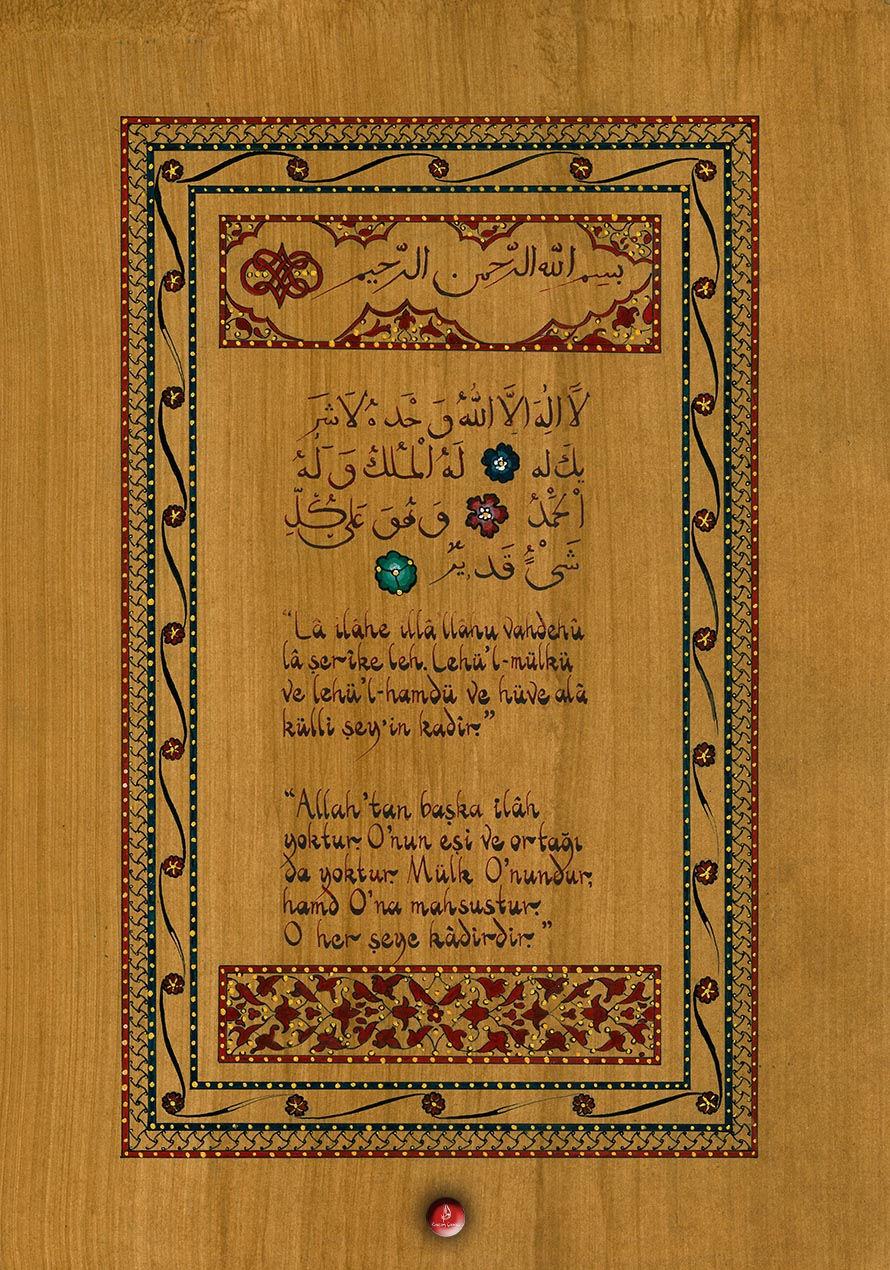 بِسِمِ اللهِ الرَّحمنِ الرَّحِيمِ
لَا اِلٰهَ اِلَّا اللهُ وَ حْدَهُ لَا شَرَ
يكَ له لَهُ الْمُلكُ وَ لَهُ
اْلحَمْدُ وَ هُوَ عَلَى كُلِّ
شَىْءٍ قَدِيرٌ
“Lâ ilâhe illâ’llâhu vahdehû
lâ şerîke leh. Lehü’l-mülkü
ve lehü’l-hamdü ve hüve alâ
külli şey’in kadîr.”
“Allah’tan başka ilâh
yoktur. O’nun eşi ve ortağı
da yoktur. Mülk O’nundur,
hamd O’na mahsustur.
O her şeye kâdirdir.”